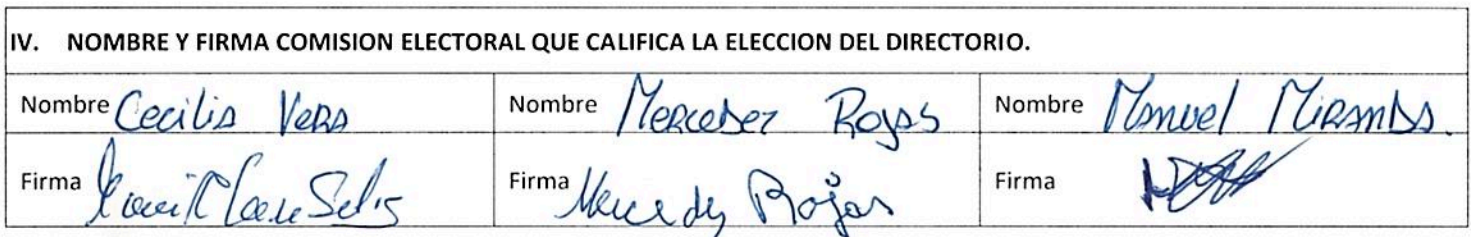 IV. NOMBRE Y FIRMA COMISION ELECTORAL QUE CALIFICA LA ELECCION DEL DIRECTORIO.
Nombre Cecilia Vera Nombre Mercedez Rojas Nombre Manuel Miranda.
Firma Firma Mercedes Rojas Firma